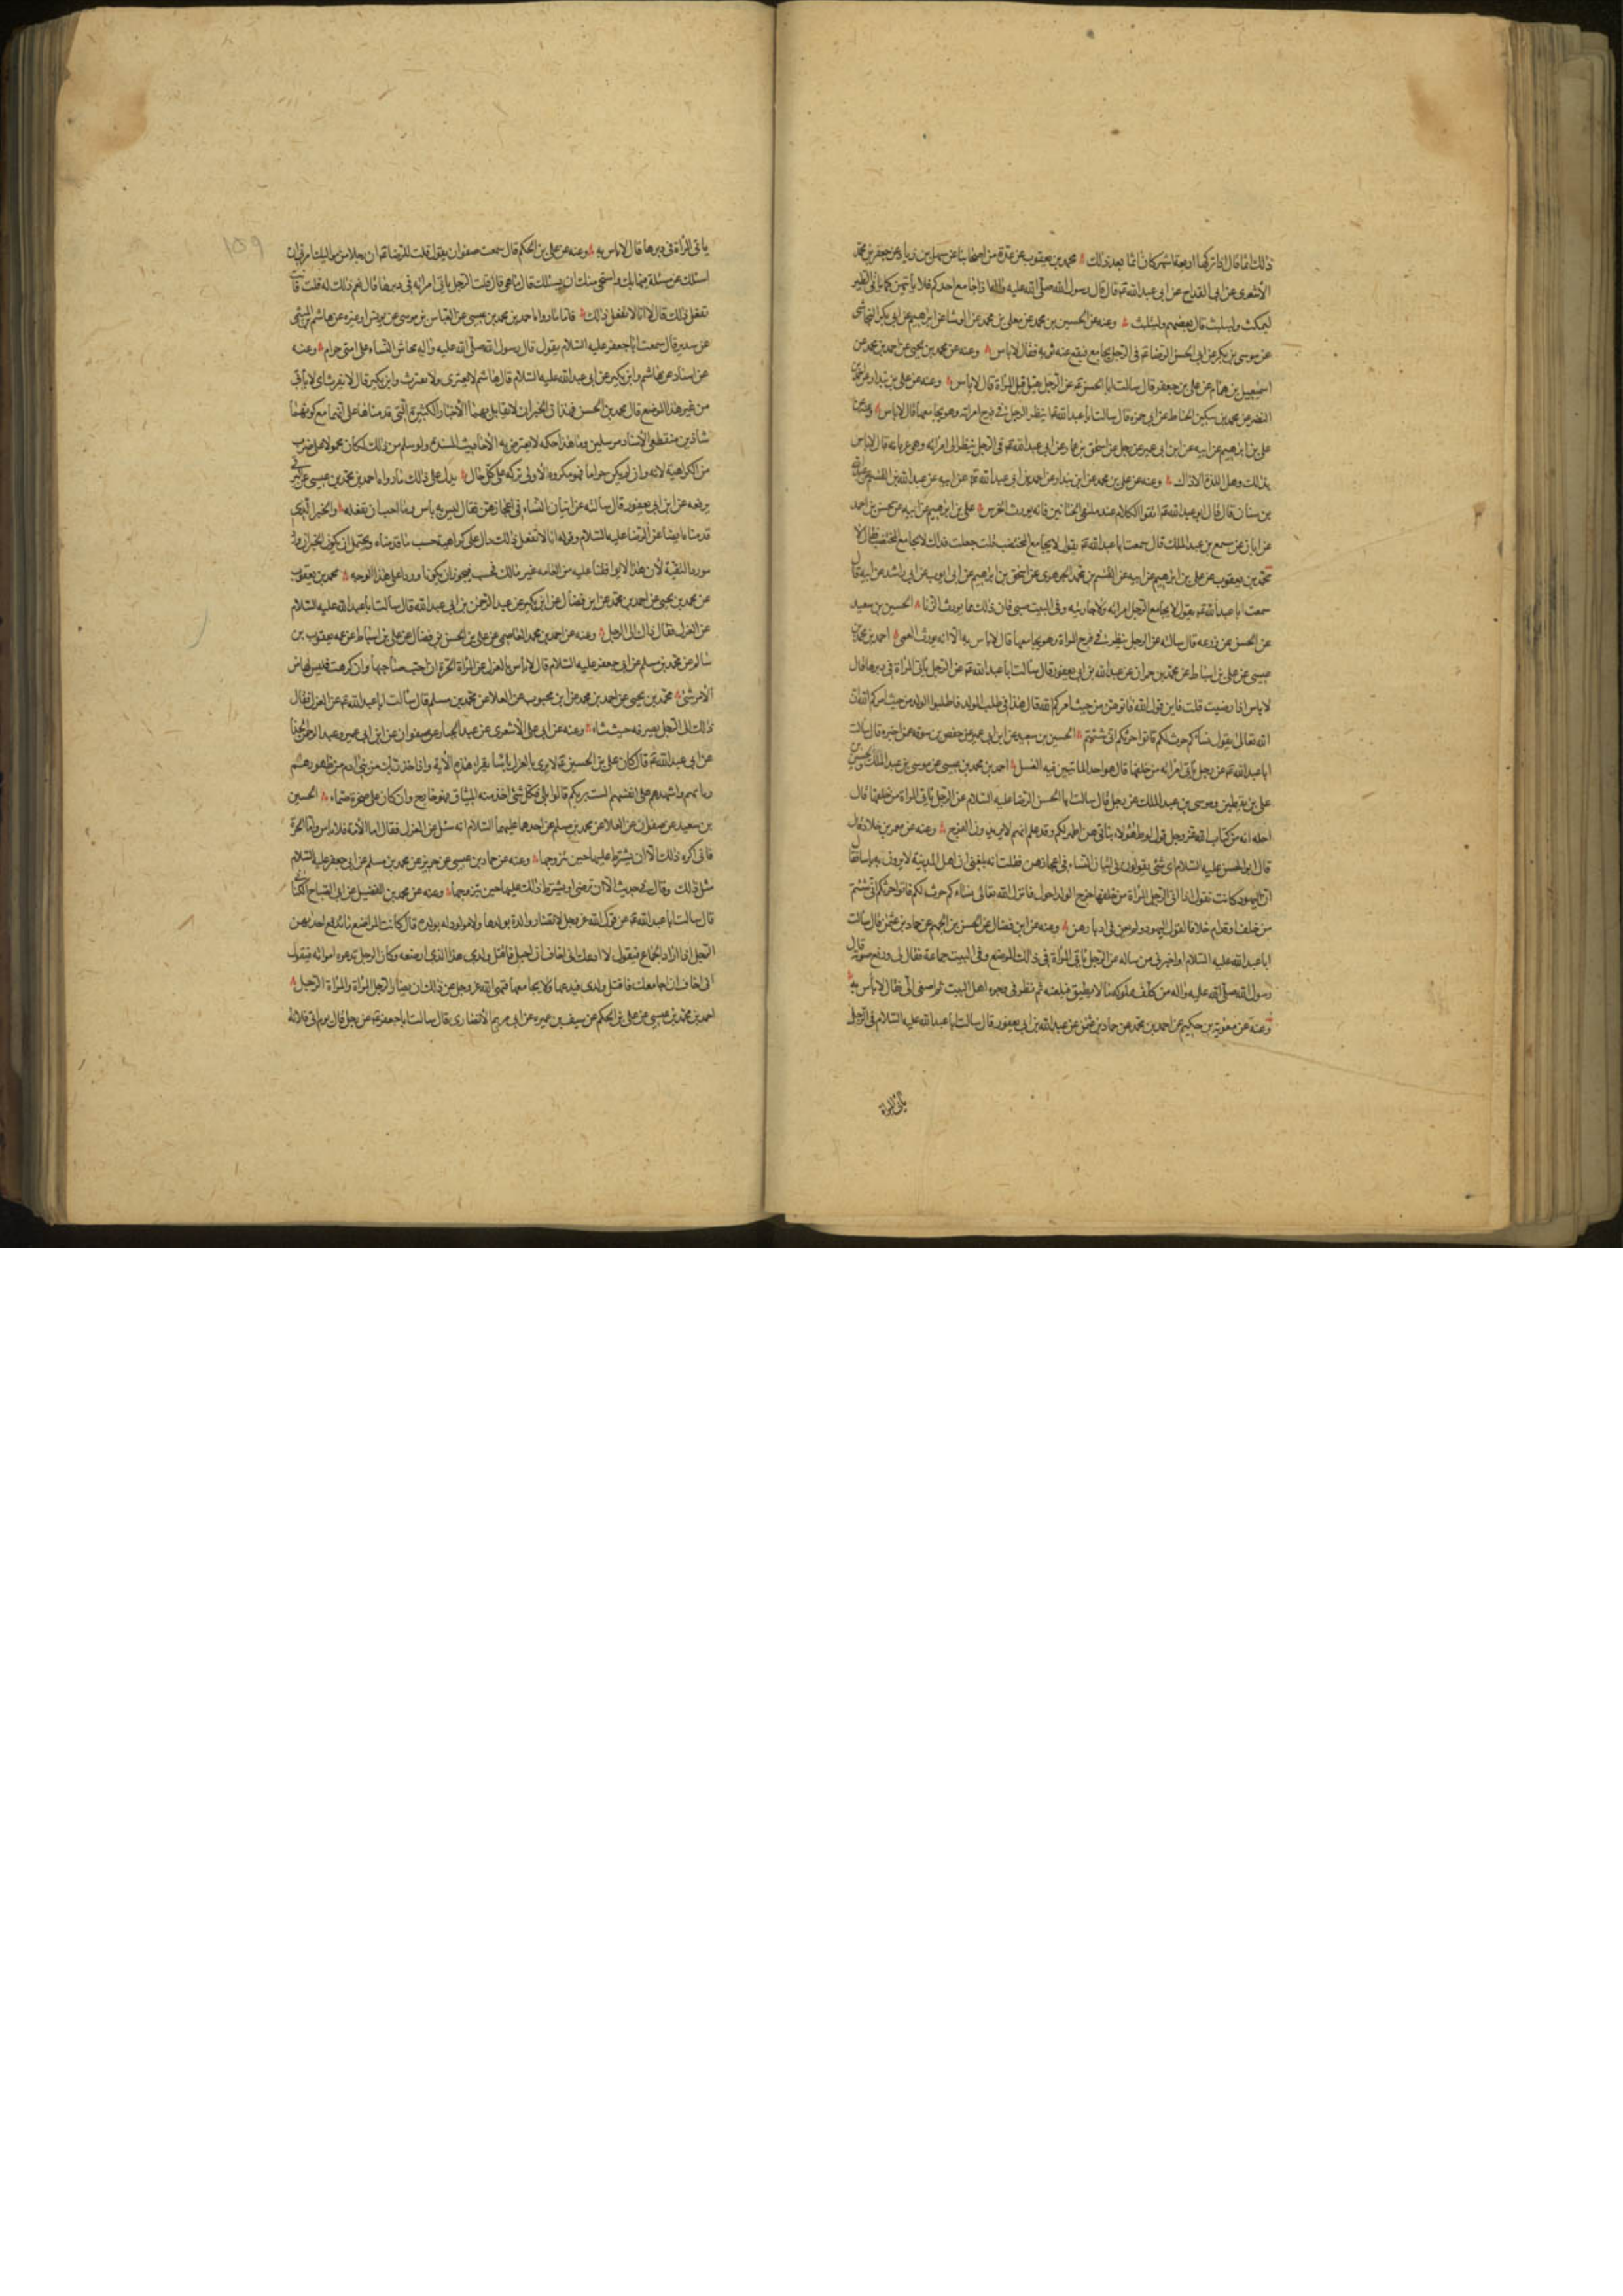 ذلك اثما قال اذا تركها اربعة اشهر كان اثما بعد ذلك محمد بن يعقوب عن عدة من اصحابنا عن سهل بن زياد عن جعفر بن محمد
الأشعرى عن ابن القداح عن ابى عبد الله ع قال قال رسول الله صلى الله عليه واله اذا جامع احدكم فلا يأتيهن كما يأتى الطير
ليمكث وليلبث قال بعضهم وليتلبث وعنه عن الحسين بن محمد عن معلى بن محمد عن الوشا عن ابرهيم عن ابى بكر النحاس
عن موسى بن بكر عن ابى الحسن الرضا ع فى الرجل يجامع فيقع عنه ثوبه فقال لا باس وعنه عن محمد بن يحيى عن احمد بن محمد عن
اسمعيل بن همام عن على بن جعفر قال سالت ابا الحسن ع عن الرجل يقبل قبل المراة قال لا باس وعنه عن على بن بندار عن
النضر عن محمد بن سكين الحناط عن ابى حمزة قال سالت ابا عبد الله ع اينظر الرجل فى فرج امراته وهو يجامعها قال لا باس وعنه عن
على بن ابرهيم عن ابيه عن ابن ابى عمير عن رجل عن اسحق بن عمار عن ابى عبد الله ع فى الرجل ينظر الى امراته وهى عريانة قال لا باس
بذلك وهل اللذة الا ذاك وعنه عن على بن محمد عن ابن بندار عن احمد بن ابى عبد الله عن ابيه عن عبد الله بن القسم عن عبد الله
بن سنان قال قال ابو عبد الله ع اتقوا الكلام عند ملتقى الختانين فانه يورث الخرس على بن ابرهيم عن ابيه عن محسن بن احمد
عن ابان عن مسمع بن عبد الملك قال سمعت ابا عبد الله ع يقول لا يجامع المختضب قلت جعلت فداك لا يجامع المختضب فقال لا
محمد بن يعقوب عن على بن ابرهيم عن ابيه عن القسم بن محمد الجوهرى عن اسحق بن ابراهيم عن ابن راشد عن ابيه قال
سمعت ابا عبد الله ع يقول لا يجامع الرجل امراته ولا جاريته وفى البيت صبى فان ذلك مما يورث الزنا الحسين بن سعيد
عن الحسن عن زرعه قال سالته عن الرجل ينظر فى فرج المراة وهو يجامعها قال لا باس به الا انه يورث العمى احمد بن محمد بن
عيسى عن على بن اسباط عن محمد بن حمران عن عبد الله بن ابى يعفور قال سالت ابا عبد الله ع عن الرجل يأتى المراة فى دبرها قال
لا باس اذا رضيت قلت فاين قول الله فاتوهن من حيث امركم الله قال هذا فى طلب الولد فاطلبوا الولد من حيث امركم الله ان
الله تعالى يقول نساؤكم حرث لكم فاتوا حرثكم انى شئتم الحسين بن سعيد عن ابن ابى عمير عن حفص بن سوقة عمن اخبره قال سالت
ابا عبد الله ع عن رجل يأتى امراته من خلفها قال هو احد الماتيين فيه الغسل احمد بن محمد بن عيسى عن موسى بن عبد الملك والحسين
على بن يقطين وموسى بن عبد الملك عن رجل قال سالت ابا الحسن الرضا عليه السلام عن الرجل يأتى المراة من خلفها قال
احله اية من كتاب الله عز وجل قول لوط هؤلاء بناتى هن اطهر لكم وقد علم انهم لا يريدون الفرج وعنه عن معمر بن خلاد قال
قال ابو الحسن عليه السلام اى شئ يقولون فى اتيان النساء فى اعجازهن فقلت انه بلغنى ان اهل المدينة لا يرون به باسا فقال
ان اليهود كانت تقول اذا اتى الرجل المراة من خلفها خرج الولد احول فانزل الله تعالى نساؤكم حرث لكم فاتوا حرثكم انى شئتم
من خلف او قدام خلافا لقول اليهود ولم يعن فى ادبارهن وعنه عن ابن فضال عن الحسن بن الجهم عن حماد بن عثمن قال سالت
ابا عبد الله عليه السلام او اخبرنى من ساله عن الرجل يأتى المراة فى ذلك الموضع وفى البيت جماعة فقال لى ورفع صوته قال
رسول الله صلى الله عليه واله من كلف مملوكه ما لا يطيق فليعنه ثم نظر فى وجوه اهل البيت ثم اصغى الى فقال لا بأس به
وعنه عن معوية بن حكيم عن احمد بن محمد عن حماد بن عثمن عن عبد الله بن ابى يعفور قال سالت ابا عبد الله عليه السلام فى الرجل
يأتى المراة
١٥٩
يأتى المراة فى دبرها قال لا باس به وعنه عن على بن الحكم قال سمعت صفوان يقول قلت للرضا ع ان رجلا من مواليك امرنى ان
اسئلك عن مسئلة فهابك واستحى منك ان يسئلك قال ما هى قال قلت الرجل ياتى امراته فى دبرها قال نعم ذلك له قلت فانت
تفعل ذلك قال لا انا لا نفعل ذلك فاما ما رواه احمد بن محمد بن عيسى عن العباس بن موسى عن يونس او غيره عن هاشم بن المثنى
عن سدير قال سمعت ابا جعفر عليه السلام يقول قال رسول الله صلى الله عليه واله محاش النساء على امتى حرام وعنه
عن اسناد عن هاشم وابن بكير عن ابى عبد الله عليه السلام قال هاشم لا تعرى ولا تفرث وابن بكير قال لا يفرث اى لا يأتى
من غير هذا الموضع قال محمد بن الحسن فهذان الخبران لا تقابل بهما الأخبار الكثيرة التى قدمناها على انهما مع كونهما
شاذين منقطعى الأسناد مرسلين وما هذا حكمه لا يعترض به الأحاديث المسندة ولو سلم من ذلك لكان محمولا على ضرب
من الكراهية لانه وان لم يكن حراما فهو مكروه والأولى تركه على كل حال يدل على ذلك ما رواه احمد بن محمد بن عيسى عن البرقى
يرفعه عن ابن ابى يعفور قال سالته عن اتيان النساء فى اعجازهن فقال ليس به باس وما احب ان تفعله والخبر الذى
قدمناه ايضا عن الرضا عليه السلام وقوله انا لا نفعل ذلك دال على كراهيته حسب ما قدمناه ويحتمل ان يكون الخبران وردا
مورد التقية لأن هذا لا يوافقنا عليه من العامه غير مالك فحسب فيجوز ان يكونا وردا على هذا الوجه محمد بن يعقوب
عن محمد بن يحيى عن احمد بن محمد عن ابن فضال عن ابن بكير عن عبد الرحمن بن ابى عبد الله قال سالت ابا عبد الله عليه السلام
عن العزل فقال ذاك الى الرجل وعنه عن احمد بن محمد العاصمى عن على بن الحسن بن فضال عن على بن اسباط عن عمه يعقوب بن
سالم عن محمد بن مسلم عن ابى جعفر عليه السلام قال لا باس بالعزل عن المراة الحرة ان احب صاحبها وان كرهت فليس لها من
الأمر شئ محمد بن يحيى عن احمد بن محمد عن ابن محبوب عن العلا عن محمد بن مسلم قال سالت ابا عبد الله ع عن العزل فقال
ذلك الى الرجل يصرفه حيث شاء وعنه عن ابى على الأشعرى عن عبد الجبار عن صفوان عن ابن ابى عمير وعبد الرحمن الحذا
عن ابى عبد الله ع قال كان على بن الحسين ع لا يرى بالعزل باسا يقرا هذه الأية واذ اخذ ربك من بنى ادم من ظهورهم
ذرياتهم واشهدهم على انفسهم الست بربكم قالوا بلى فكل شئ اخذ منه الميثاق فهو خارج وان كان على صخرة صماء الحسين
بن سعيد عن صفوان عن العلا عن محمد بن مسلم عن احدهما عليهما السلام انه سئل عن العزل فقال اما الأمة فلا باس واما الحرة
فانى اكره ذلك الا ان يشترط عليها حين يتزوجها وعنه عن حماد بن عيسى عن حريز عن محمد بن مسلم عن ابى جعفر عليه السلام
مثل ذلك وقال فى حديثه الا ان ترضى او يشترط ذلك عليها حين يتزوجها وعنه عن محمد بن الفضيل عن ابى الصباح الكنانى
قال سالت ابا عبد الله ع عن قول الله عز وجل لا تضار والدة بولدها ولا مولود له بولده قال كانت المراضع مما تدفع احديهن
الرجل اذا اراد الجماع فيقول لا ادعك انى اخاف ان احبل فاقتل ولدى هذا الذى ارضعه وكان الرجل تدعوه امراته فيقول
انى اخاف ان اجامعك فاقتل ولدى فيدعها ولا يجامعها فنهى الله عز وجل عن ذلك ان يضار الرجل المراة والمراة الرجل
احمد بن محمد بن عيسى عن على بن الحكم عن سيف بن عميرة عن ابى مريم الأنصارى قال سالت ابا جعفر ع عن رجل قال يوم اتى فلانة